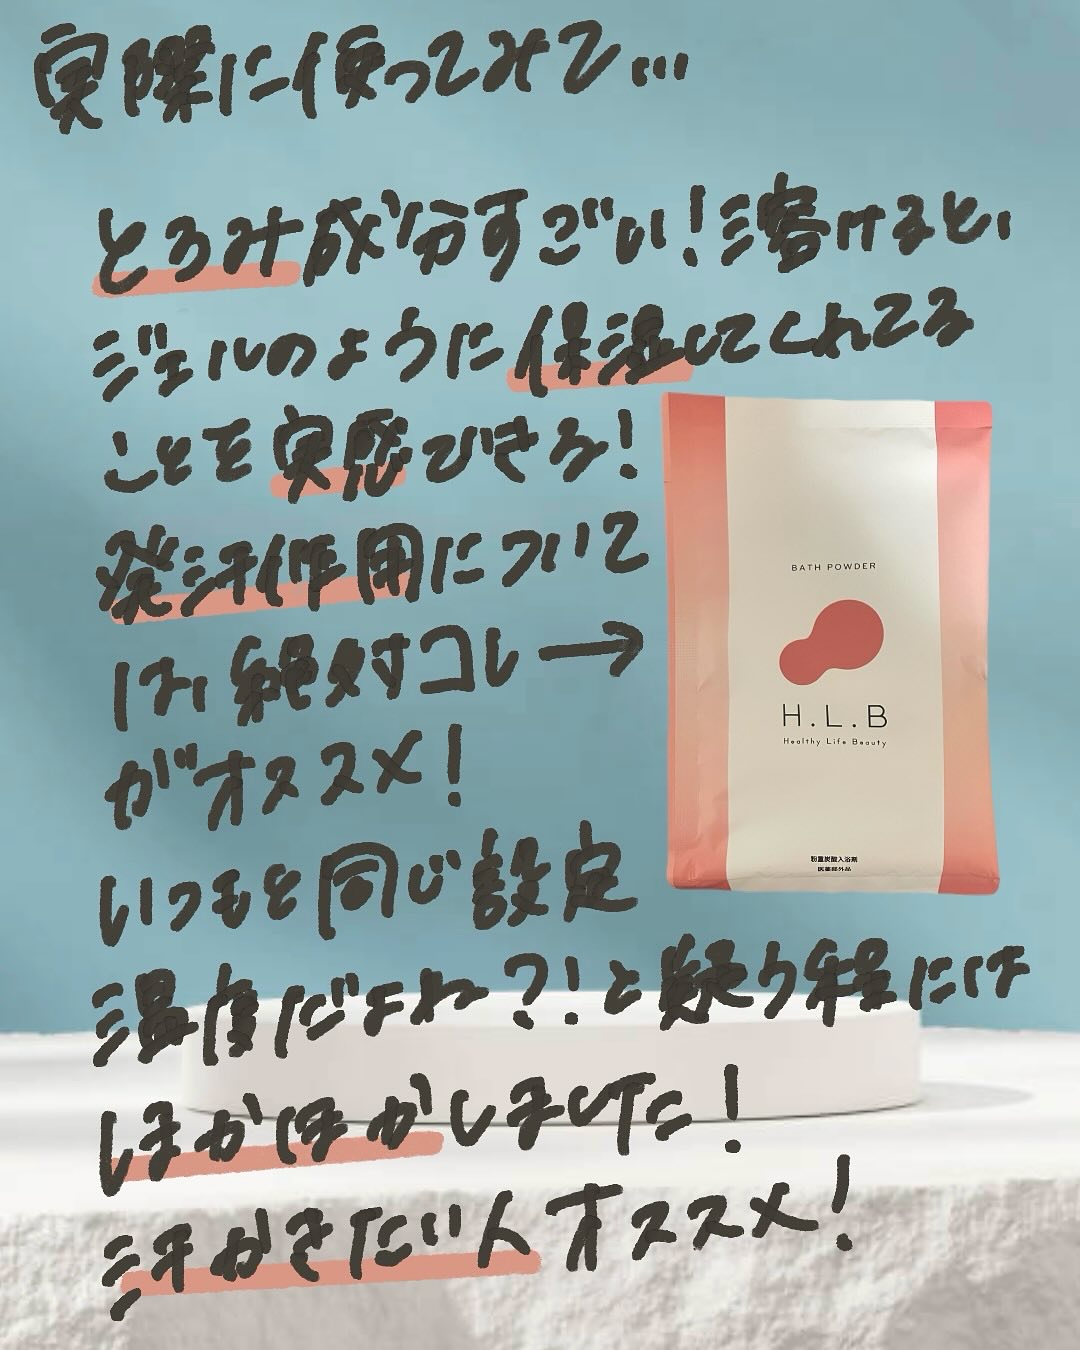 実際に使ってみて...
とろみ成分すごい!溶けると、
ジェルのように保湿してくれてる
ことを実感できる!
発汗作用について
は、絶対コレ→
がオススメ!
いつもと同じ設定
温度だよね?!と疑う程には
ほかほかしました!
汗かきたい人オススメ!
BATH POWDER
H.L.B
Healthy Life Beauty
粉重炭酸入浴剤
医薬部外品